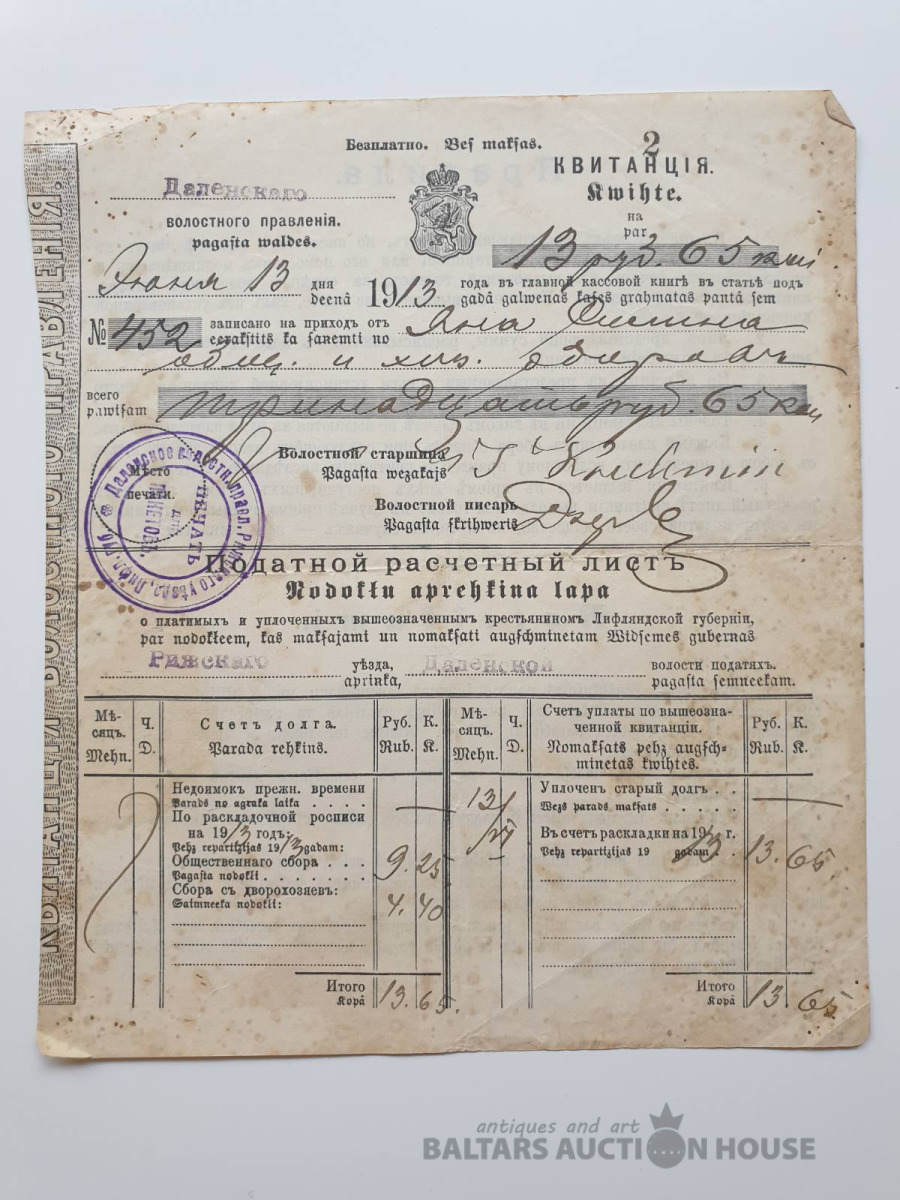 Безплатно. Bes maksas.
2
КВИТАНЦІЯ.
Kwihte.
на
par
13 руб. 65 коп
Даленскаго
волостного правленія.
pagasta waldes.
Июня 13 дня
deenâ 1913 года въ главной кассовой книгѣ въ статьѣ подъ
gadâ galwenas kases grahmatas pantâ sem
№ 452 записано на приходъ отъ
eerakstits ka saņemti no Яна
общ. и хоз.
всего
pawisam тринадцать руб. 65 коп
Волостной старшина
Pagasta wezakajs
Мѣсто
печати.
Волостной писарь
Pagasta skrihweris
Даленское волостн. правл. Рижскаго уѣзда, Лифл. губ.
ПЕЧАТЬ
ДЛЯ
ПАКЕТОВЪ.
Податной расчетный листъ
Nodokļu aprehķina lapa
о платимыхъ и уплоченныхъ вышеозначеннымъ крестьяниномъ Лифляндской губерніи,
par nodokļeem, kas maksajami un nomaksati augschminetam Widsemes gubernas
Рижскаго уѣзда,
apriņka, Даленской волости податяхъ.
pagasta semneekam.
Мѣ-
сяцъ.
Mehn.
Ч.
D.
Счетъ долга.
Parada rehķins.
Руб.
Rub.
К.
K.
Мѣ-
сяцъ.
Mehn.
Ч.
D.
Счетъ уплаты по вышеозна-
ченной квитанціи.
Nomaksats pehz augsch-
minetas kwihtes.
Руб.
Rub.
К.
K.
Недоимокъ прежн. времени
Parads no agraka laika . . . .
По раскладочной росписи
на 1913 годъ:
Pehz repartizijas 1913 gadam:
Общественнаго сбора . . . 9. 25
Pagasta nodokļi . . . . . . .
Сбора съ дворохозяевъ: 4. 40
Saimneeka nodokļi:
Итого
Kopâ 13. 65.
13/VI
Уплоченъ старый долгъ . .
Wezs parads maksats . . . . .
Въ счетъ раскладки на 1913 г.
Pehz repartizijas 1913 gadam . . 13. 65.
Итого
Kopâ 13 65.
КВИТАНЦІЯ ВОЛОСТНОГО ПРАВЛЕНІЯ.
antiques and art
BALTARS AUCTION HOUSE